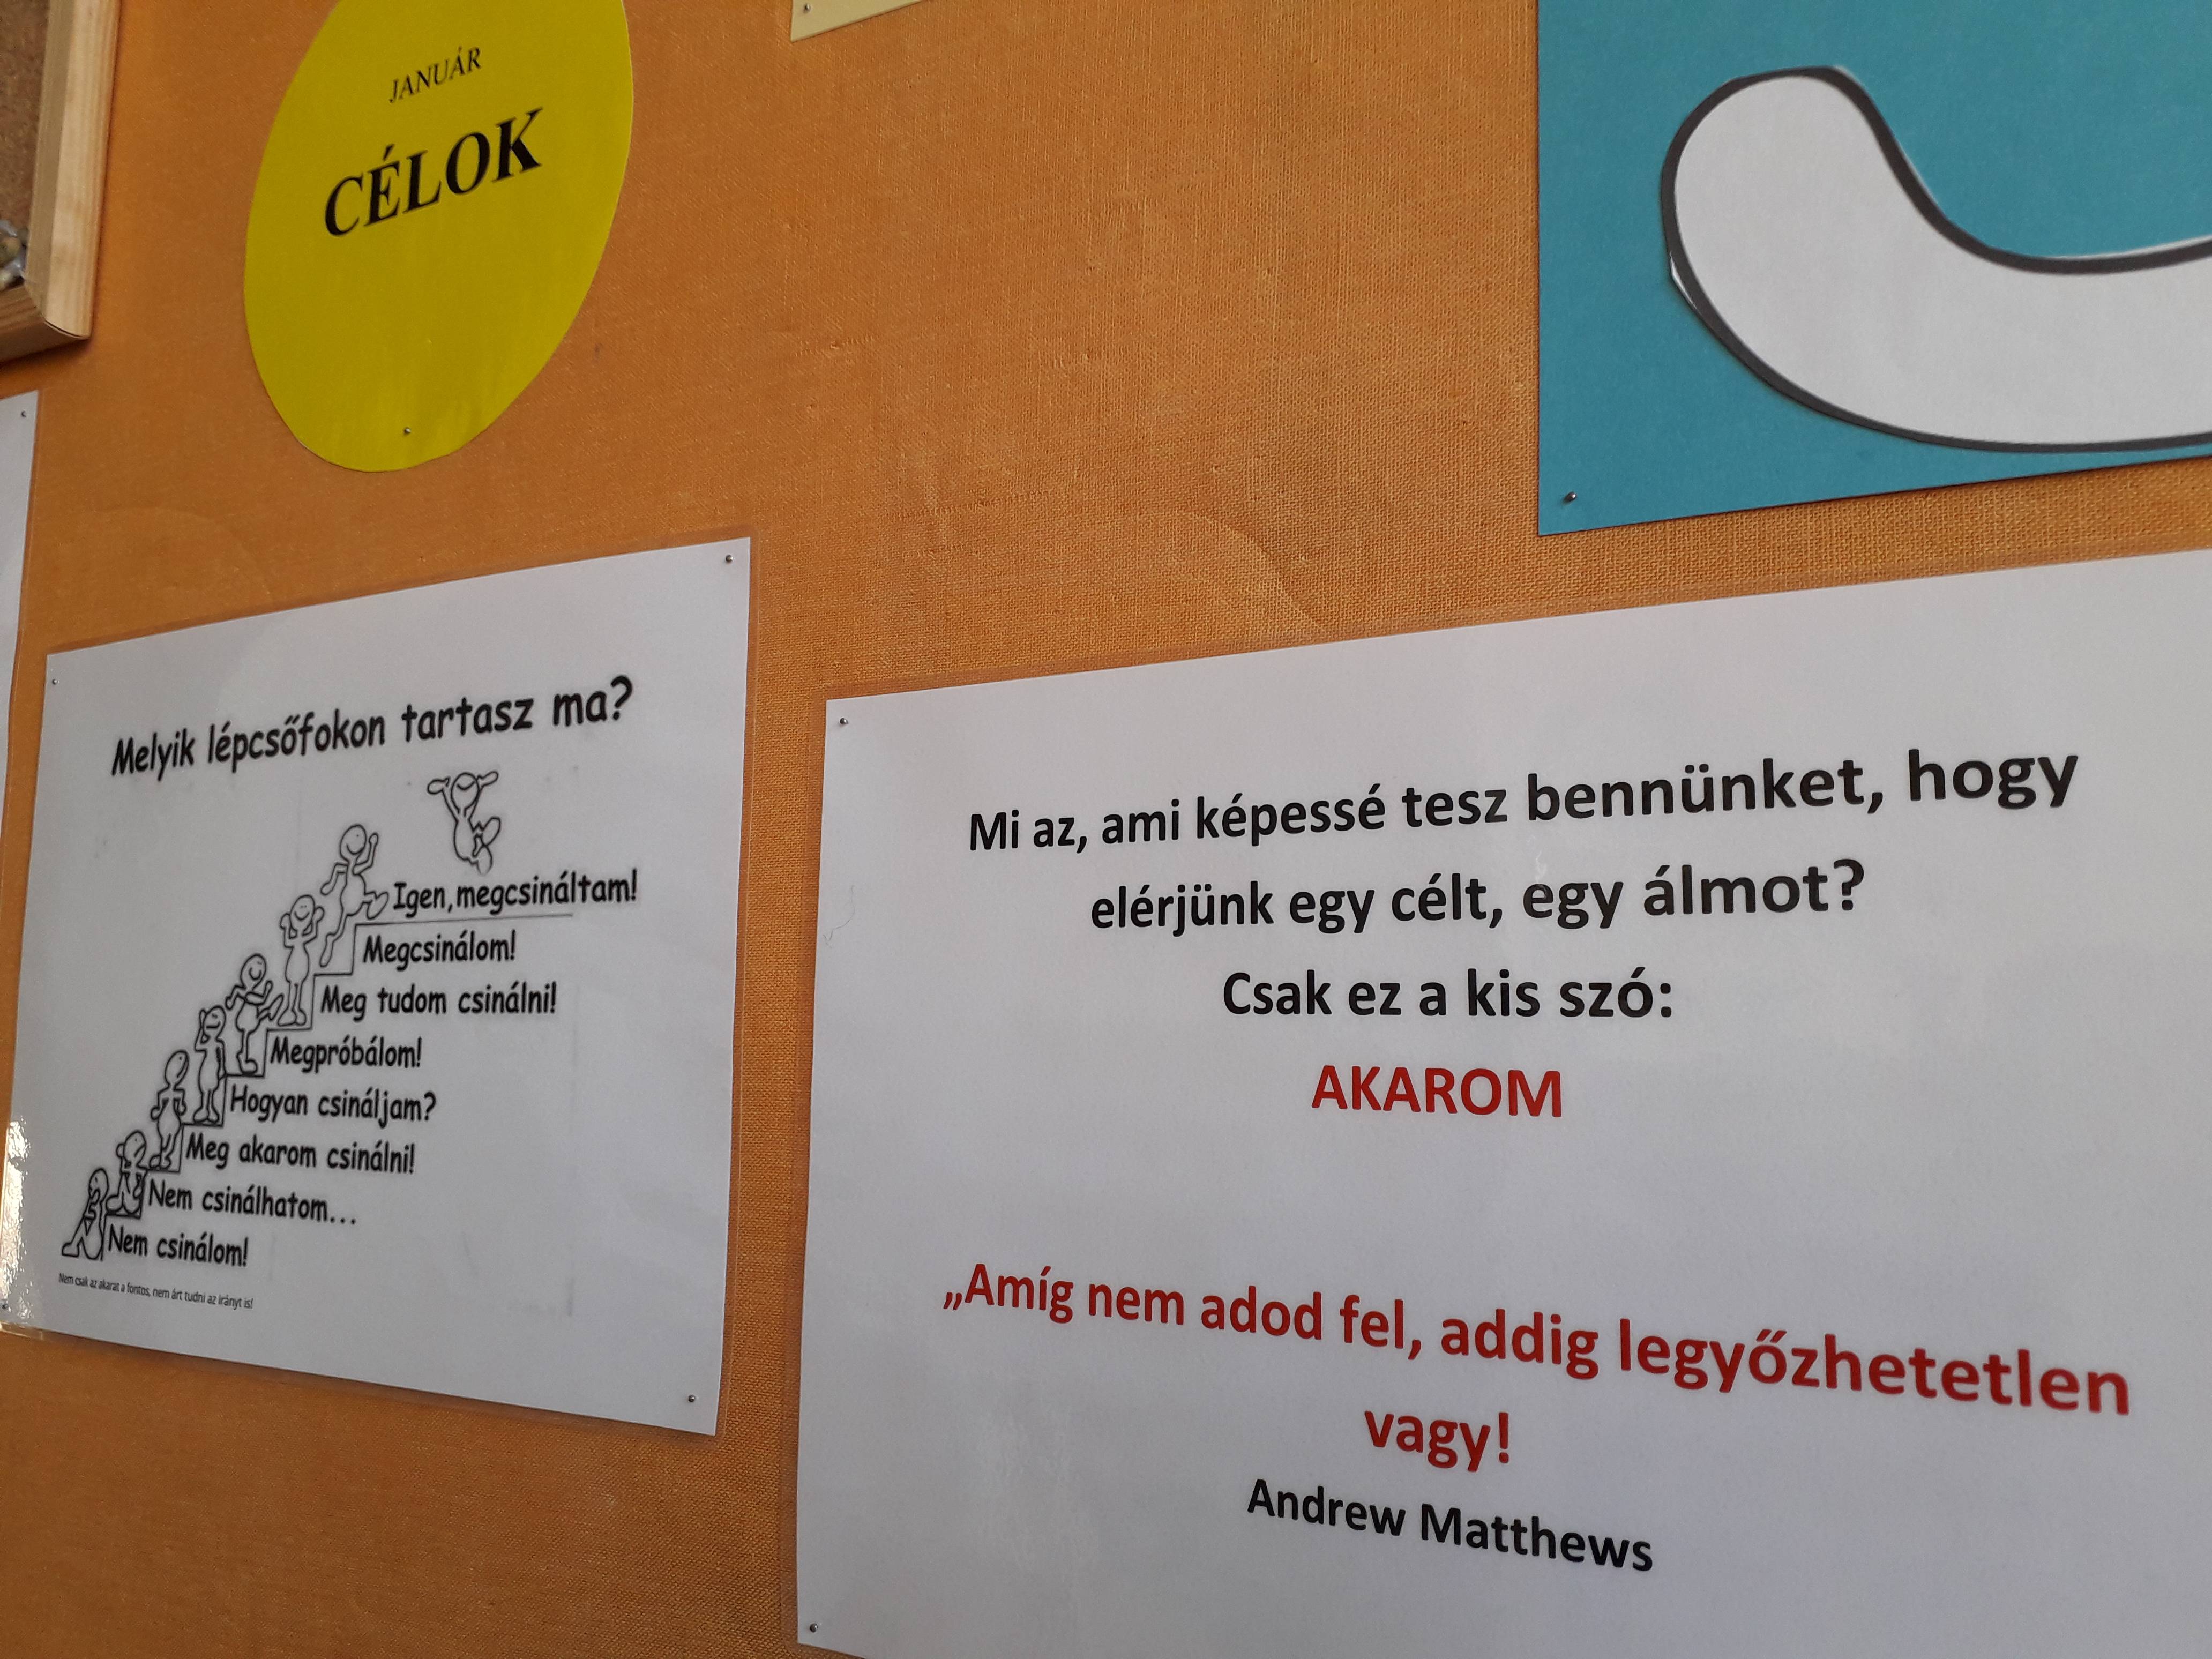 JANUÁR
CÉLOK
Melyik lépcsőfokon tartasz ma?
Igen, megcsináltam!
Megcsinálom!
Meg tudom csinálni!
Megpróbálom!
Hogyan csináljam?
Meg akarom csinálni!
Nem csinálhatom...
Nem csinálom!
Nem csak az akarat a fontos, nem árt tudni az irányt is!
Mi az, ami képessé tesz bennünket, hogy
elérjünk egy célt, egy álmot?
Csak ez a kis szó:
AKAROM
„Amíg nem adod fel, addig legyőzhetetlen
vagy!
Andrew Matthews